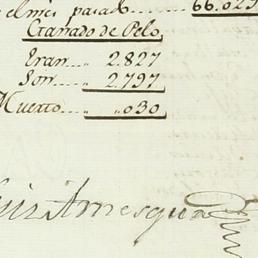 el mes pasado ........ 66.029
Ganado de Pelo
Eran .... 2.827
Son .... 2.797
Muerto .... 030
Luis Amesqua